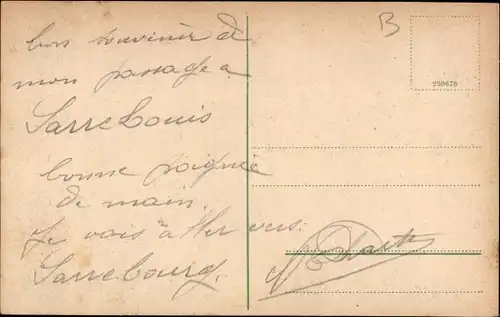 bon souvenir de
mon passage a
Sarrelouis
bonne poignée
de main.
Je vais aller vers
Sarrebourg.
B
220678